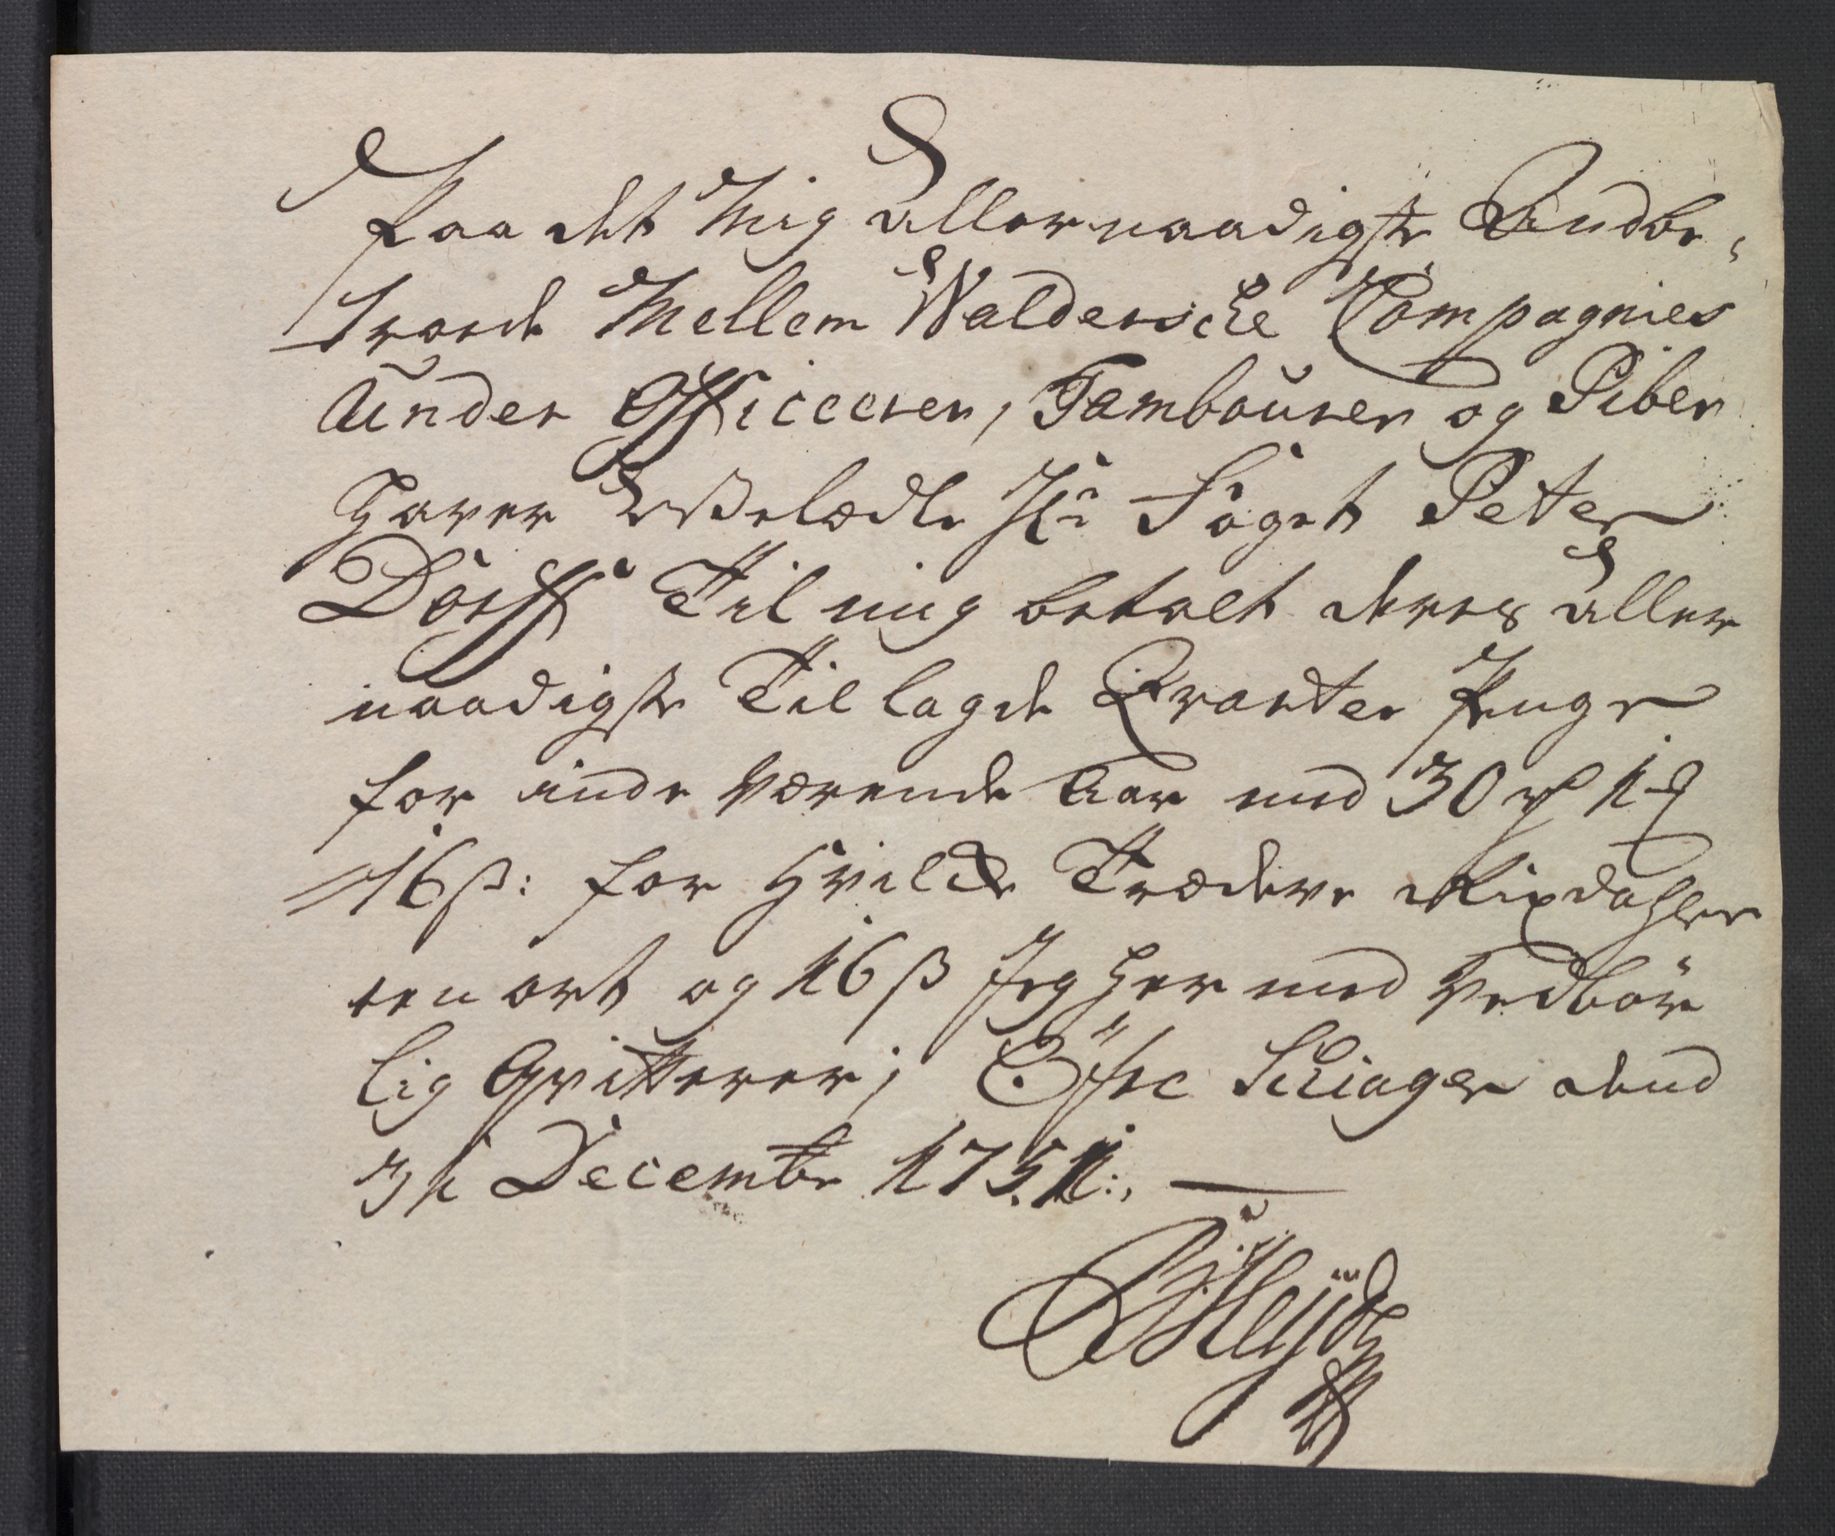 Paa det Mig allernaadigste Andbe-
troede Mellem Waldersche Compagnies
Under Officeerer, Tambourer og Piber
Haver Velædle Hr Foget Peter
Dorff Til mig betalt deres aller
naadigste Tillagde Qvarteer Penge
for inde Værende Aar med 30 rd 1 ort
16 ß: for Hvilke Trædeve Rixdahler
een ort og 16 ß Jeg her med Vedbör
lig Qvitterer; Öfre Schiager dend
31 Decembr 1751:,